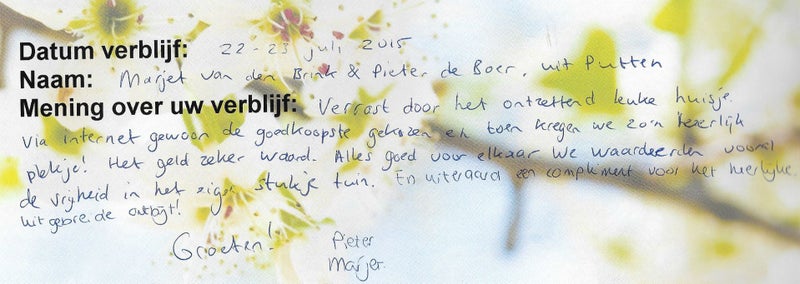 Datum verblijf: 22-23 juli 2015
Naam: Marjet van den Brink & Pieter de Boer, uit Putten
Mening over uw verblijf: Verrast door het ontzettend leuke huisje.
Via internet gewoon de goedkoopste gekozen en toen kregen we zo'n heerlijk
plekje! Het geld zeker waard. Alles goed voor elkaar. We waardeerden vooral
de vrijheid in het eigen stukje tuin. En uiteraard een compliment voor het heerlijke,
uitgebreide ontbijt!
Groeten! Pieter
Marjet